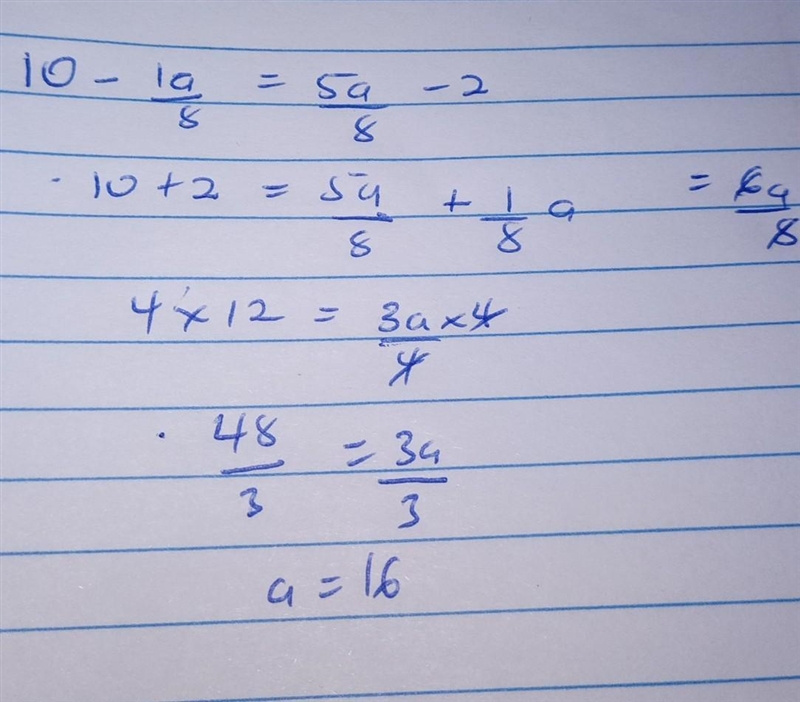 10 - 1a/8 = 5a/8 - 2
10 + 2 = 5a/8 + 1/8 a = 6a/8
4 × 12 = 3a × 4/4
48/3 = 3a/3
a = 16